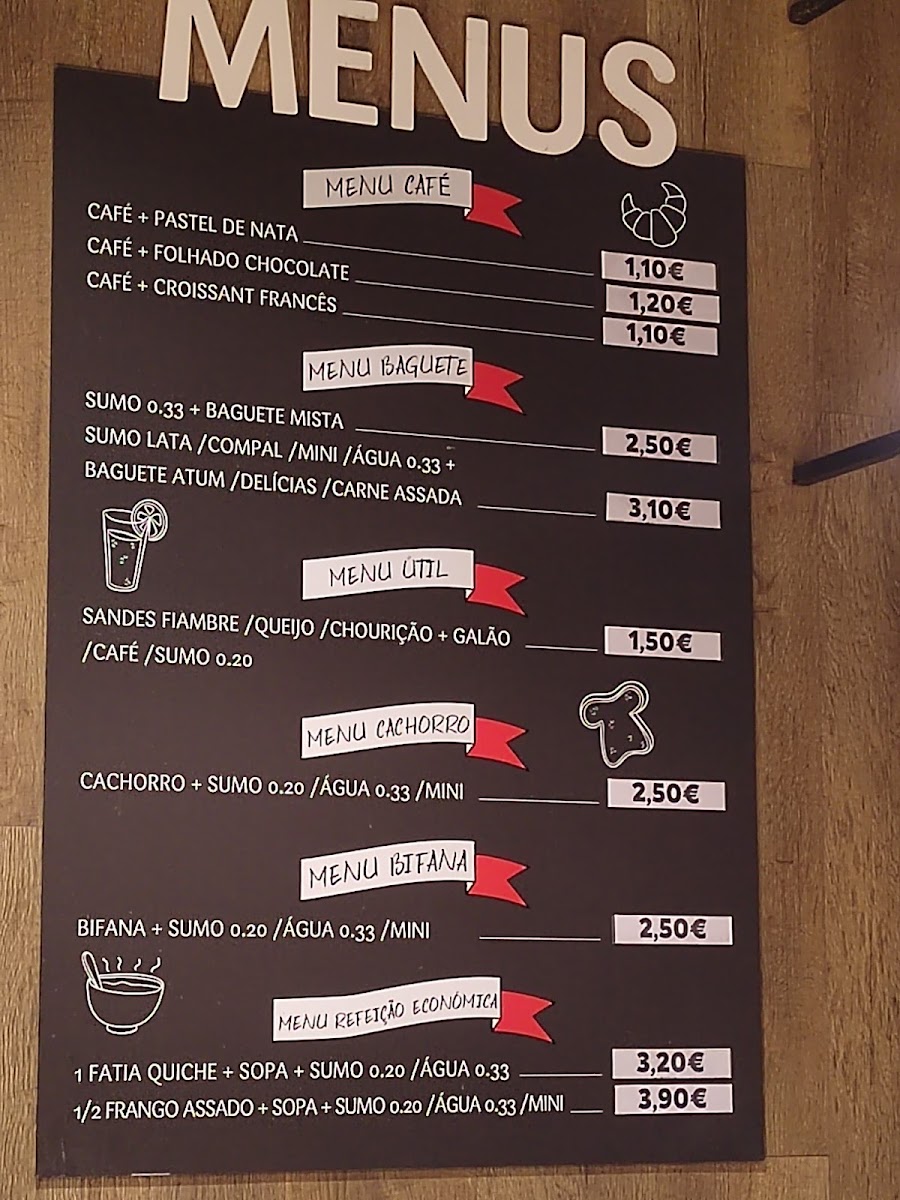 MENUS
MENU CAFÉ
CAFÉ + PASTEL DE NATA 1,10€
CAFÉ + FOLHADO CHOCOLATE 1,20€
CAFÉ + CROISSANT FRANCÊS 1,10€
MENU BAGUETE
SUMO 0.33 + BAGUETE MISTA 2,50€
SUMO LATA /COMPAL /MINI /ÁGUA 0.33 +
BAGUETE ATUM /DELÍCIAS /CARNE ASSADA 3,10€
MENU ÚTIL
SANDES FIAMBRE /QUEIJO /CHOURIÇÃO + GALÃO 1,50€
/CAFÉ /SUMO 0.20
MENU CACHORRO
CACHORRO + SUMO 0.20 /ÁGUA 0.33 /MINI 2,50€
MENU BIFANA
BIFANA + SUMO 0.20 /ÁGUA 0.33 /MINI 2,50€
MENU REFEIÇÃO ECONÓMICA
1 FATIA QUICHE + SOPA + SUMO 0.20 /ÁGUA 0.33 3,20€
1/2 FRANGO ASSADO + SOPA + SUMO 0.20 /ÁGUA 0.33 /MINI 3,90€